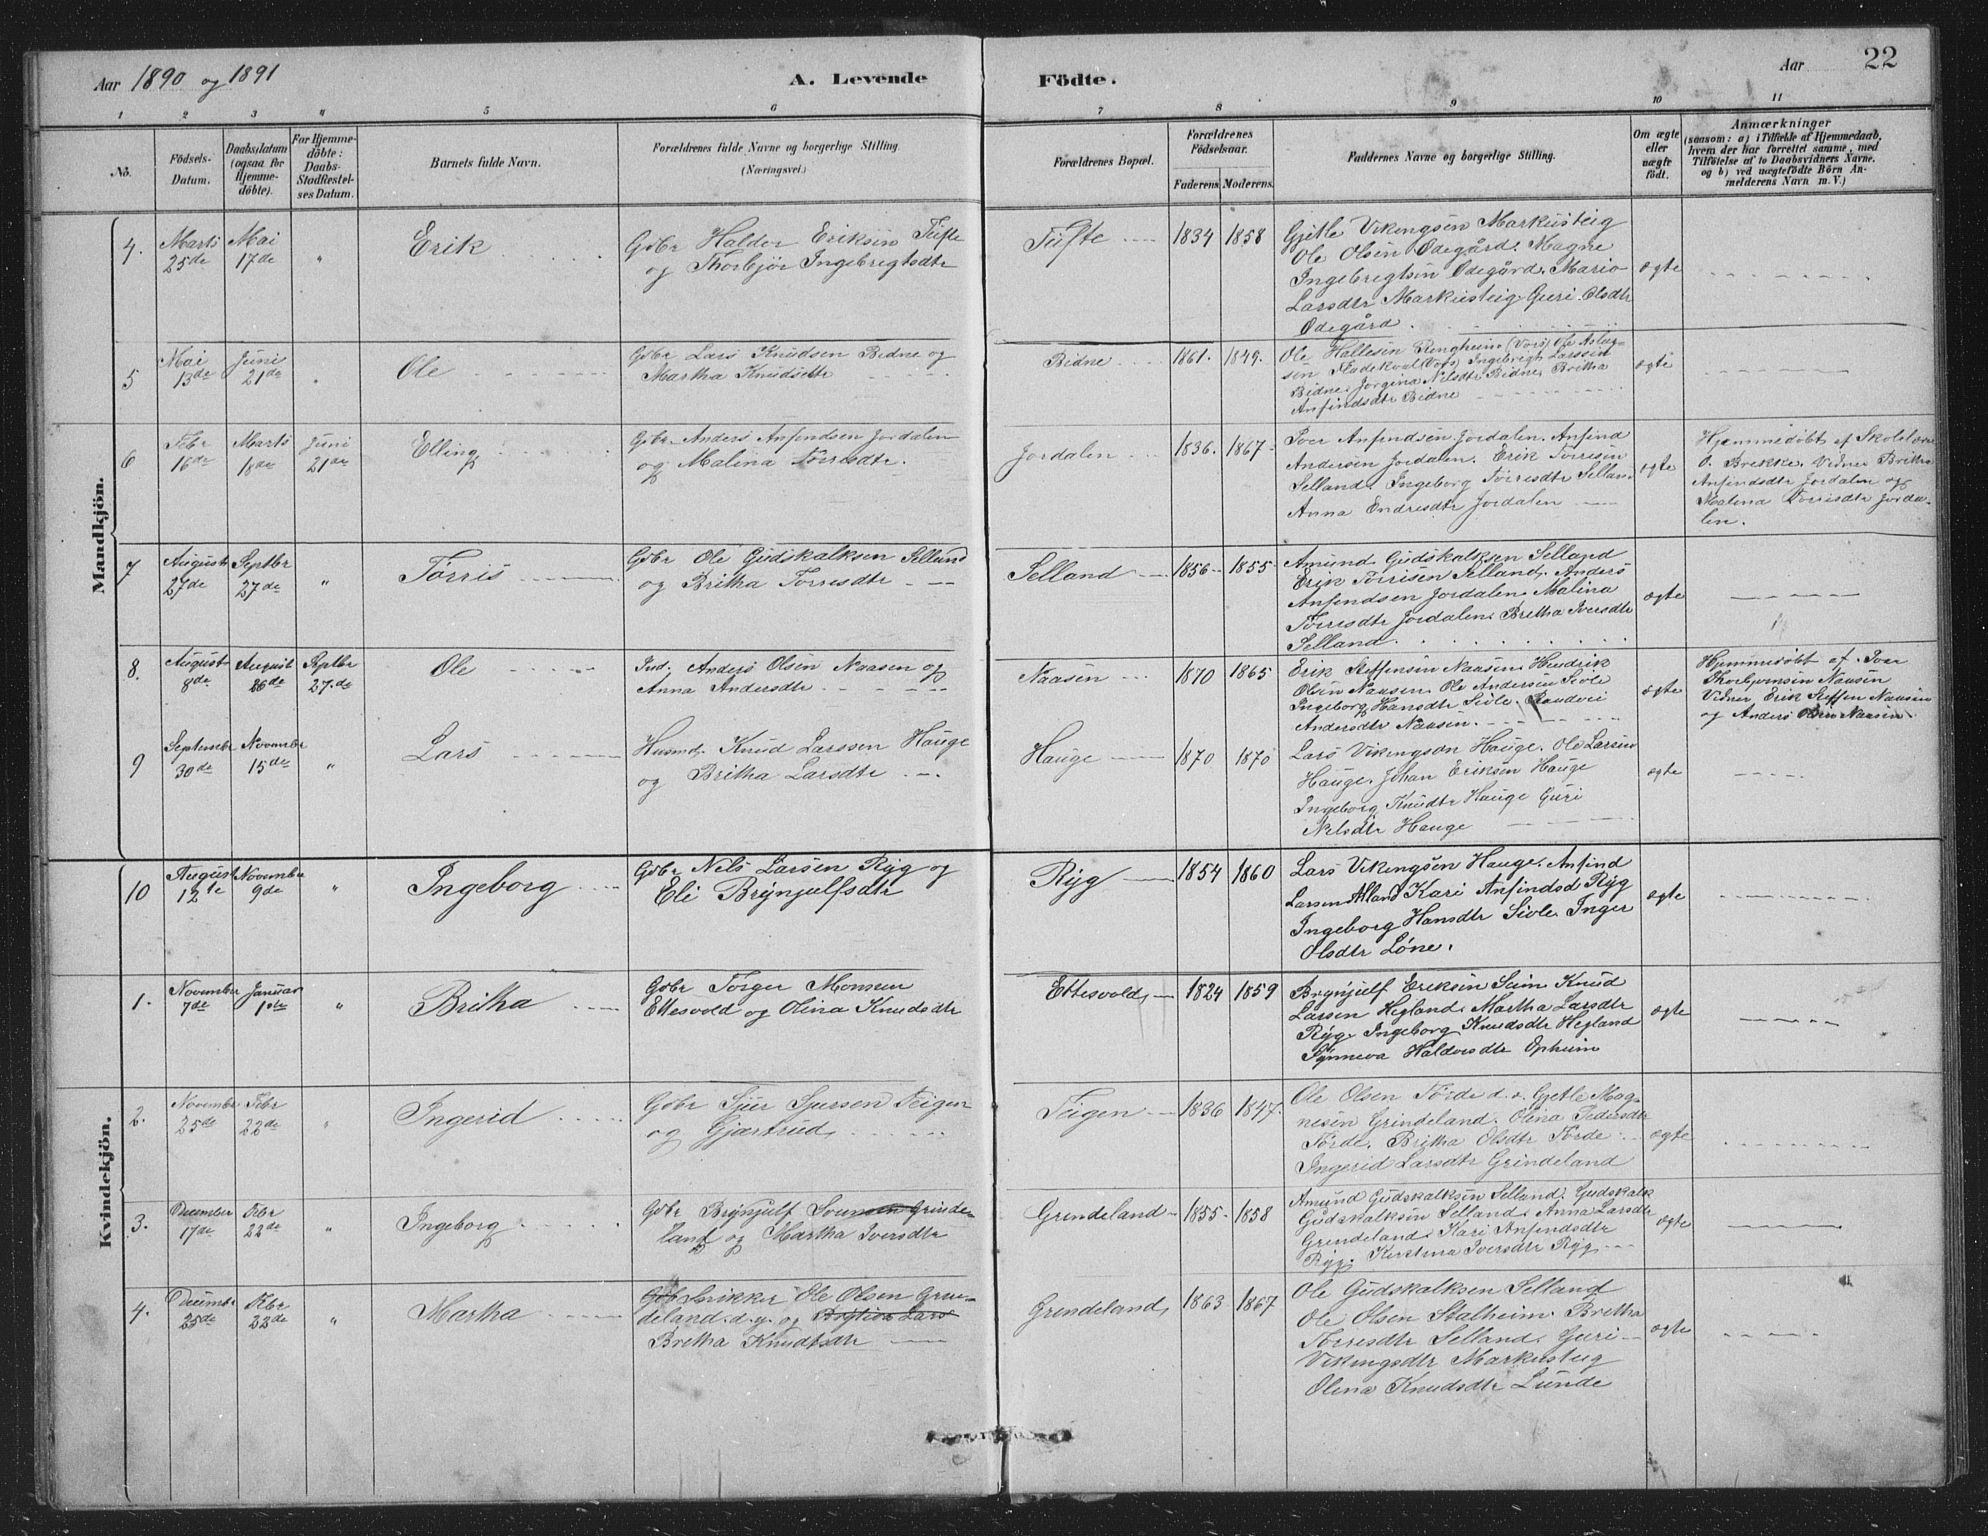 Aar 1890 og 1891
A. Levende
Fødte.
Aar
22
1 2 3 4 5 6 7 8 9 10 11
No.
Fødsels-
Datum.
Daabsdatum
(ogsaa for
Hjemme-
døbte).
For Hjemme-
døbte:
Daabs-
Stadfæstel-
ses Datum.
Barnets fulde Navn.
Forældrenes fulde Navne og borgerlige Stilling
(Næringsvei.)
Forældrenes Bopæl.
Forældrenes
Fødselsaar.
Faderens. Moderens.
Faddernes Navne og borgerlige Stilling.
Om ægte
eller
uægte
født.
Anmærkninger
(saasom: a) i Tilfælde af Hjemmedaab,
hvem der har forrettet samme, med
Tilføielse af to Daabsvidners Navne.
og b) ved uægtefødte Børn An-
melderens Navn m. V.)
Mandkjön.
4.
Marts
25de
Mai
17de
"
Erik
Gdbr Haldor Eriksen Tufte
og Thorbjør Ingebrigtsdtr
Tufte
1834
1858
Gjetle Vikingsen Markusteig
Ole Olsen Ødegård. Magne
Ingebrigtsen Ødegård. Mario
Larsdtr Markusteig Guri Olsdtr
Ødegård
ægte
5
Mai
13de
Juni
21de
"
Ole
Gdbr Lars Knudsen Bidne og
Martha Knudsdtr
Bidne
1861.
1849.
Ole Hallesen Ringheim (Vors) Ole Aslag-
sen Fladekval (Vors) Ingebrigt Larssen
Bidne. Jorgina Nilsdtr Bidne. Britha
Anfindsdtr Bidne
ægte
6
Febr
16de
Marts
18de
Juni
21de
Elling
Gdbr. Anders Anfindsen Jordalen
og Malina Torrisdtr.
Jordalen
1836.
1867
Iver Anfindsen Jordalen. Anfind
Andersen Jordalen. Erik Torrisen
Selland. Ingeborg Torrisdtr Selland
Anna Endresdtr Jordalen
ægte
Hjemmedøbt af Skolelærer
O. Brekke. Vidner Britha
Anfindsdtr Jordalen og
Malena Torrisdtr Jorda-
len.
7
August
27de
Septbr
27de
"
Tørris
Gdbr Ole Gudskalksen Selland
og Britha Torresdtr
Selland
1856
1855
Amund Gudskalksen Selland
Erik Torrisen Selland. Anders
Anfindsen Jordalen. Malina
Torrisdtr Jordalen. Britha Iversdtr
Selland
ægte
8.
August
8de
August
26de
Septbr
27de
Ole
Ind. Anders Olsen Naasen og
Anna Andersdtr
Naasen
1870
1865
Erik Steffensen Naasen. Hendrik
Olsen Naasen. Ole Andersen Sivle
Ingeborg Hansdtr Sivle. Randvei
Andersdtr Naasen.
ægte
Hjemmedøbt af Iver
Thorbjørnsen Naasen
Vidner Erik Steffen Naasen
og Anders Olsen Naasen
9
Septembr
30de
Novembr
15de
"
Lars
Husmd. Knud Larssen Hauge
og Britha Larsdtr
Hauge
1870
1870
Lars Vikingson Hauge. Ole Larsen
Hauge. Johan Eriksen Hauge
Ingeborg Knudtr Hauge Guri
Nelsdtr Hauge
ægte
Kvindekjön.
10
August
12te
Novembr
9de
"
Ingeborg
Gdbr Nels Larsen Ryg og
Eli Brynjulfsdtr
Ryg
1854
1860
Lars Vikingsen Hauge. Anfind
Larsen Alland Kari Anfindsd Ryg
Ingeborg Hansdtr Sivle. Inger
Olsdtr Løne.
ægte
1.
November
7de
Januar
1ste
"
Britha
Gdbr Torger Monsen
Ettesvold og Olina Knudsdtr
Ettesvold
1824
1859
Brynjulf Eriksen Suim Knud
Larsen Hegland. Martha Larsdtr
Ryg. Ingeborg Knudsdtr Hegland
Synneva Haldorsdtr Opheim
ægte
2.
November
25de
Febr
22de
"
Ingerid
Gdbr Sjur Sjursen Teigen
og Gjærtrud
Teigen
1836
1847.
Ole Olsen Tørde d. æ. Gjetle Mag-
nesen Grindeland. Olina Pedersdtr
Tørde. Britha Olsdtr Tørde
Ingerid Larsdtr Grindeland
ægte
3.
December
17de
Febr
22de
"
Ingeborg
Gdbr Brynjulf Svensen Grinde-
land og Martha Iversdtr
Grindeland
1855
1858
Amund Gudskalksen Selland. Gudskalk
Gudskalksen Selland. Anna Larsdtr
Grindeland. Kari Anfindsdtr
Ryg. Kirstina Iversdtr Ryg
ægte
4.
December
25de
Febr
22de
"
Martha
Gdbr Snikker Ole Olsen Grin-
deland. d. y. og Lars
Britha Knudtsdtr
Grindeland
1863
1867
Ole Gudskalksen Selland
Ole Olsen Stalheim. Britha
Torresdtr Selland. Guri
Vikingsdtr Markusteig
Olina Knudsdtr Lunde
ægte